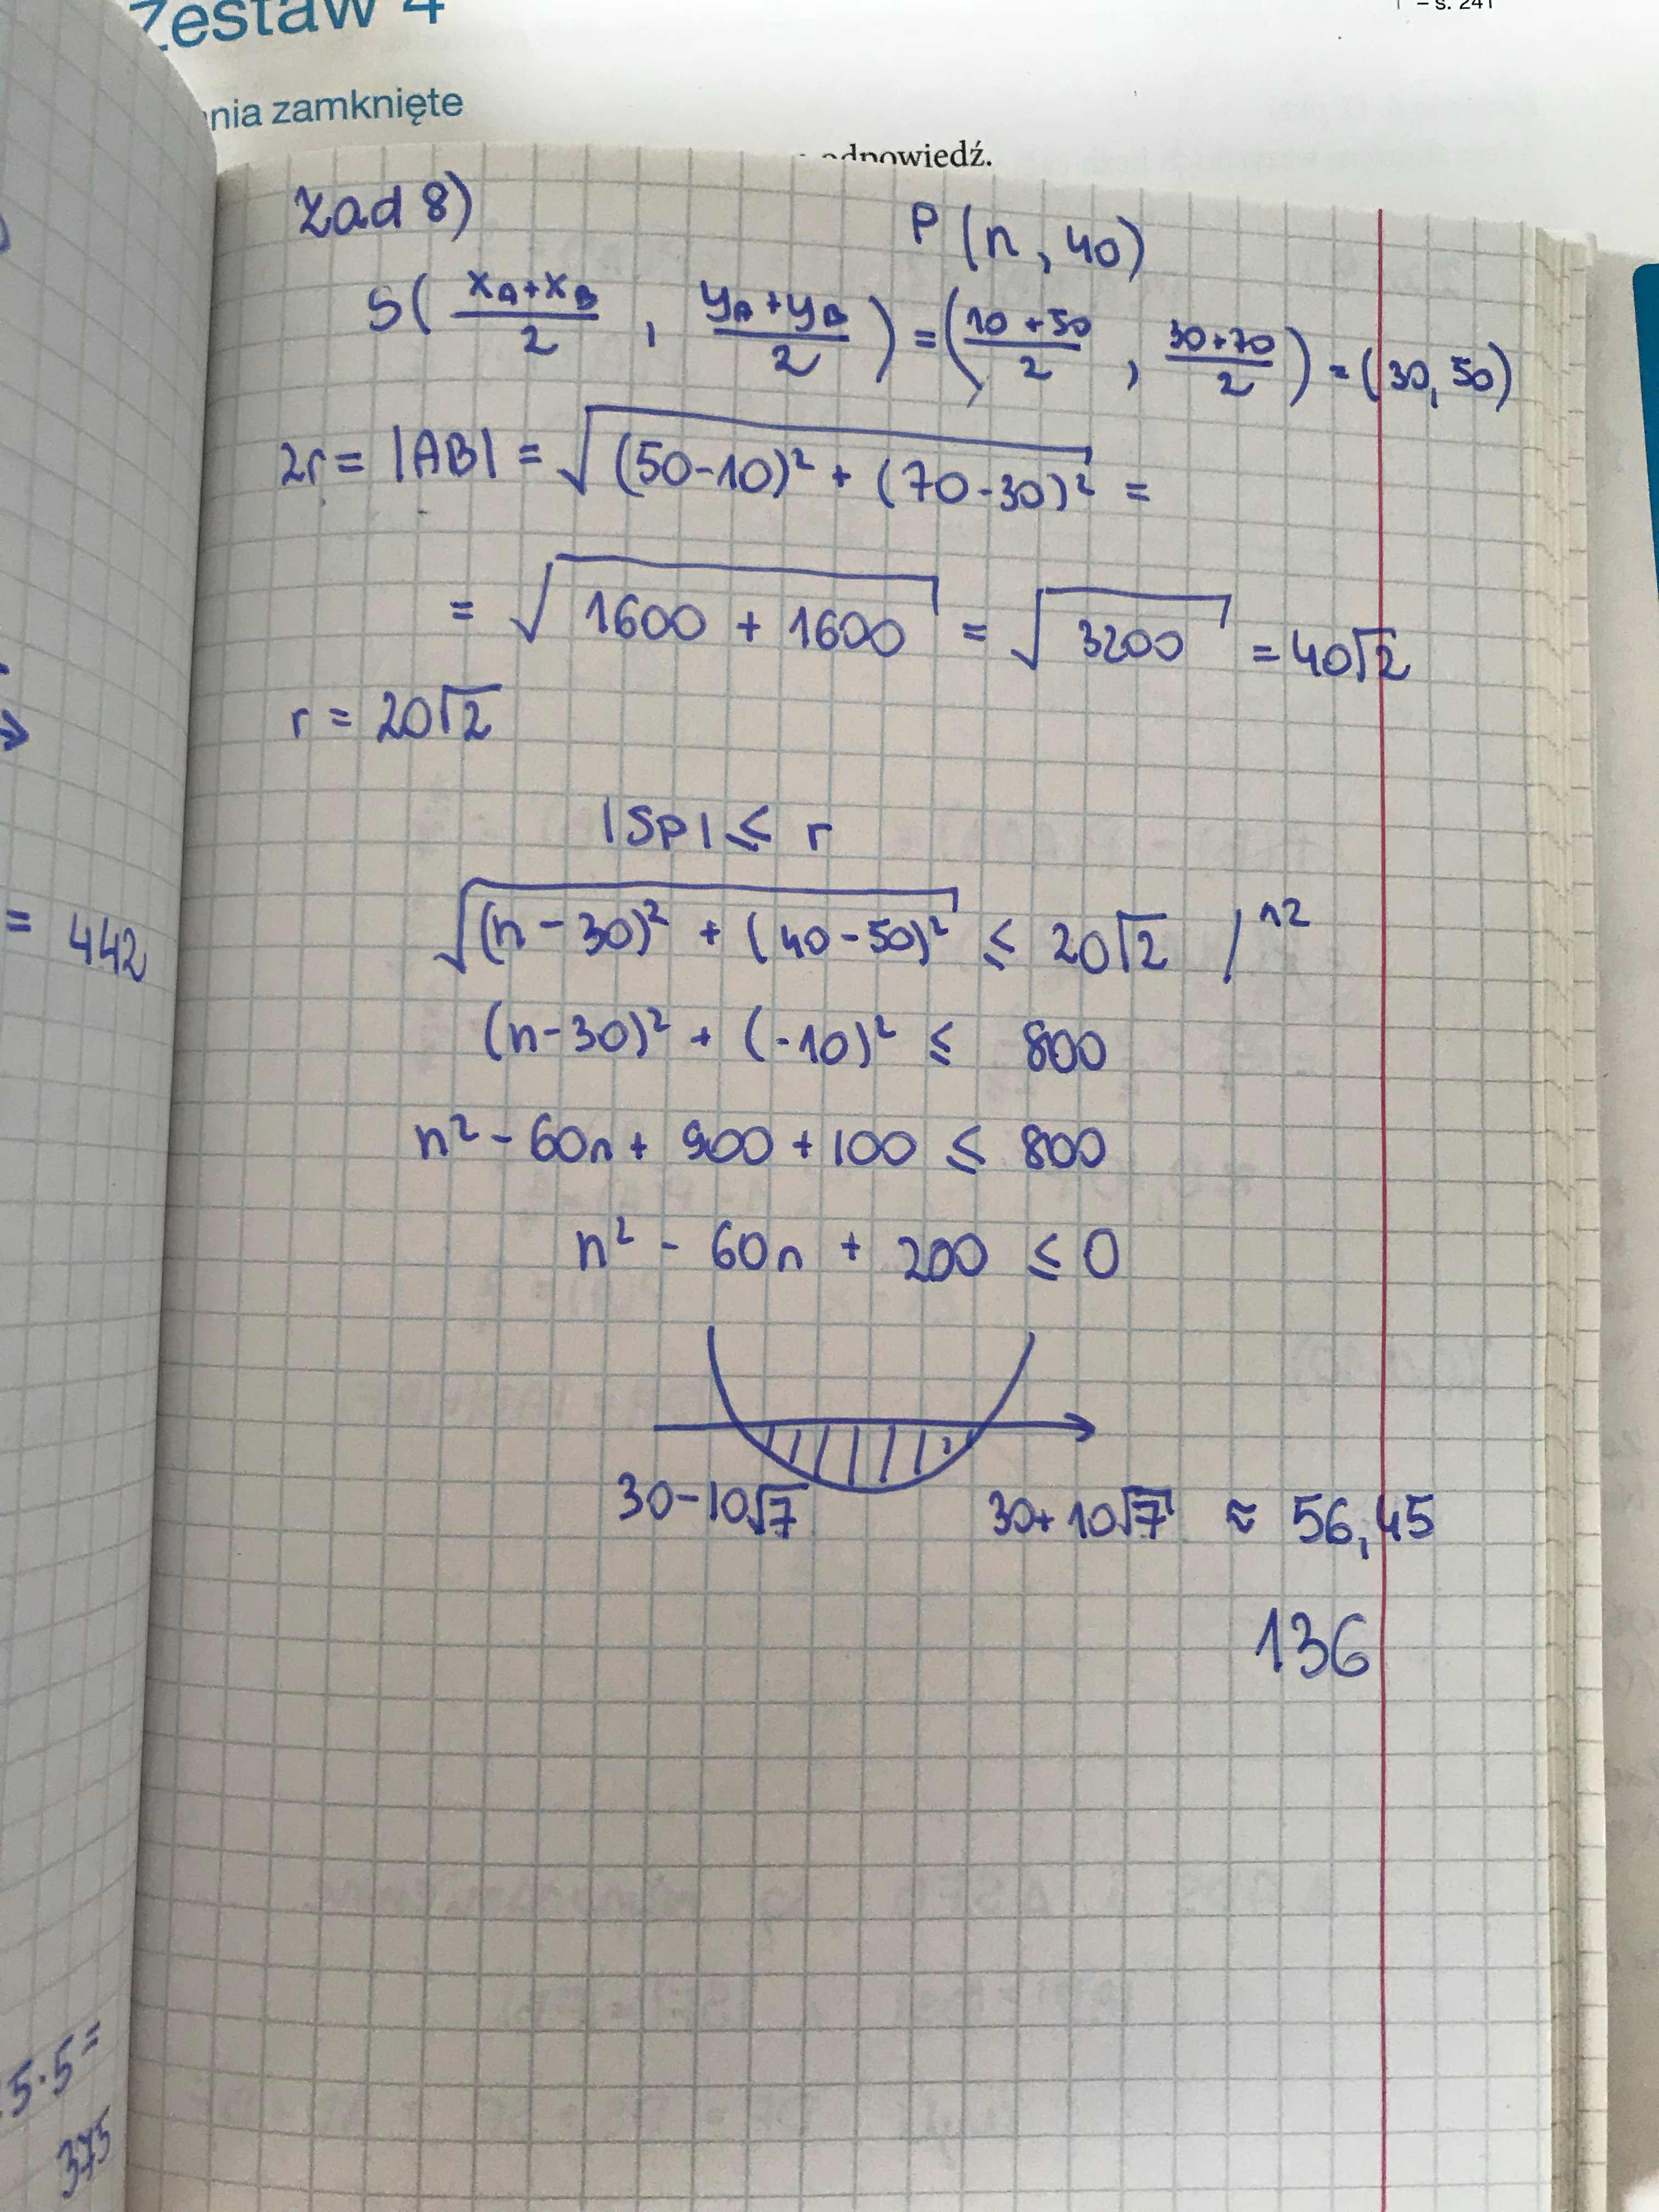 Zestaw 4
– s. 241
nia zamknięte
odpowiedź.
Zad 8)
P(n, 40)
S( (xA+xB)/2 , (yA+yB)/2 ) = ( (10+50)/2 , (30+70)/2 ) = (30, 50)
2r = |AB| = √((50-10)² + (70-30)²) =
= √(1600 + 1600) = √3200 = 40√2
r = 20√2
|SP| ≤ r
√((n-30)² + (40-50)²) ≤ 20√2 /^2
(n-30)² + (-10)² ≤ 800
n² - 60n + 900 + 100 ≤ 800
n² - 60n + 200 ≤ 0
30-10√7 30+10√7 ≈ 56,45
136
= 442
5·5=
375